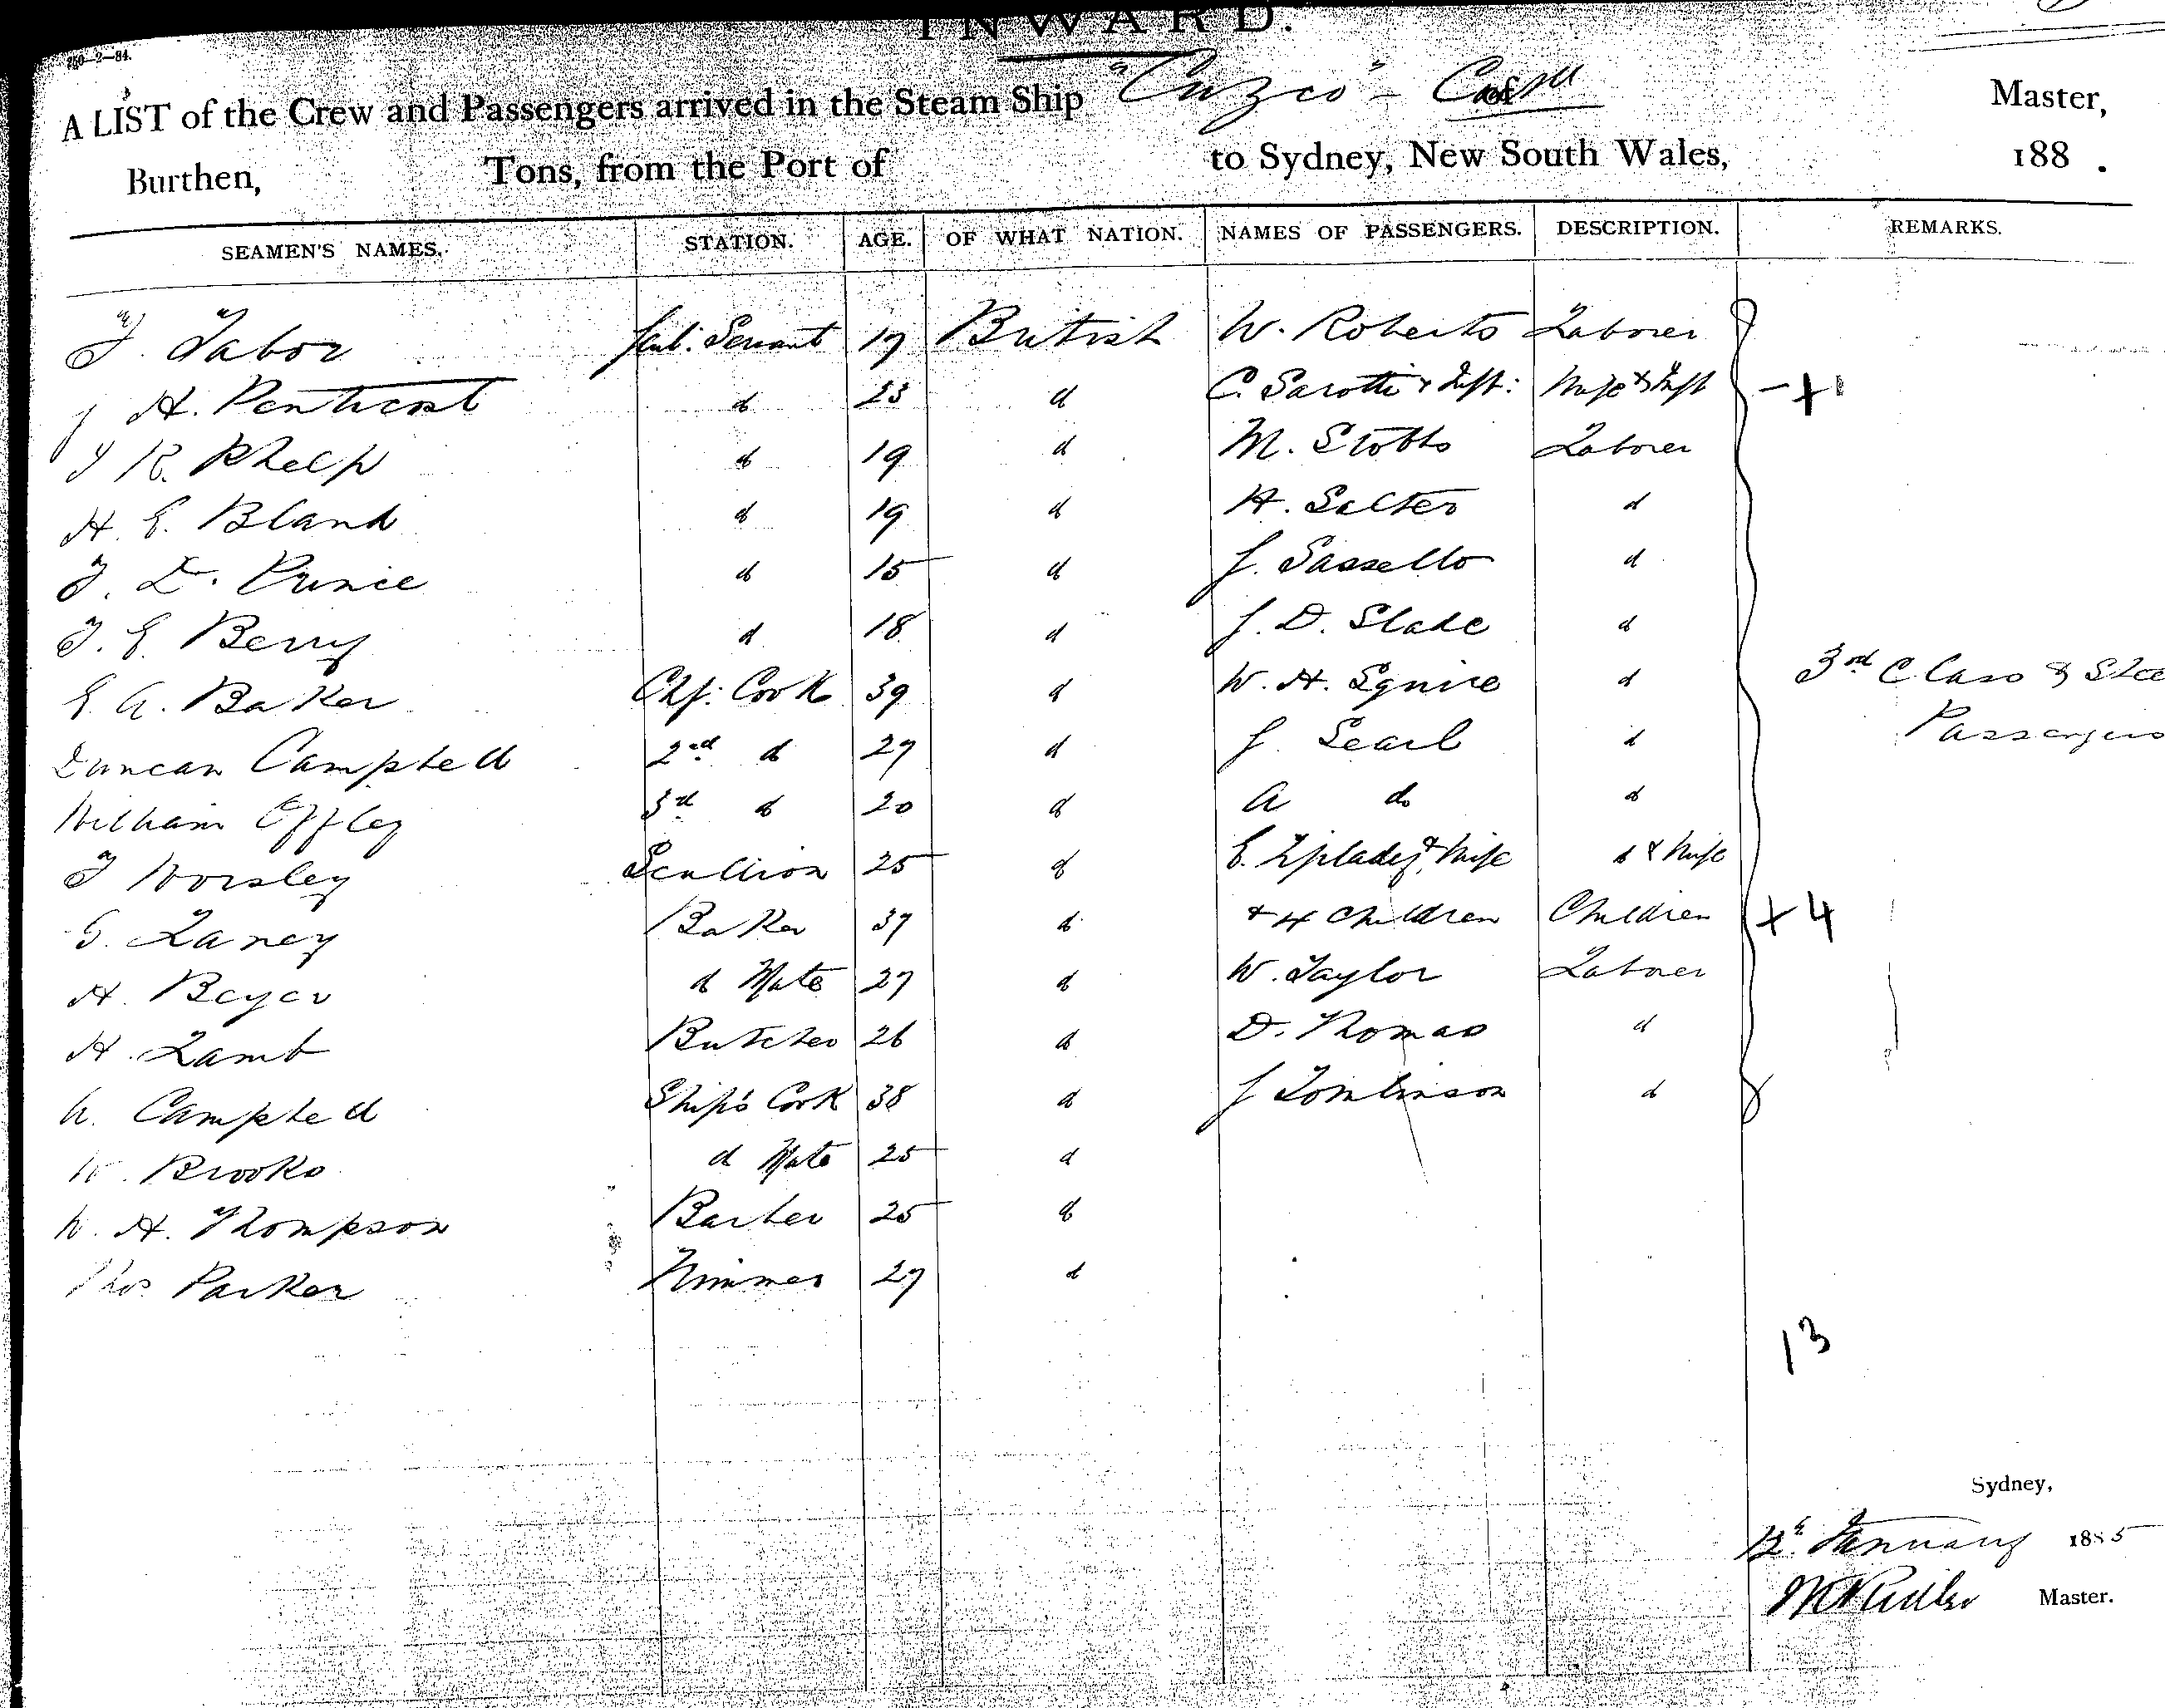 INWARD.
250—2—84.
A LIST of the Crew and Passengers arrived in the Steam Ship "Cuzco" - Master,
Burthen, Tons, from the Port of to Sydney, New South Wales, 188 .
SEAMEN'S NAMES. STATION. AGE. OF WHAT NATION. NAMES OF PASSENGERS. DESCRIPTION. REMARKS.
J. Tabor Servant 17 British W. Roberts Laborer
H. Pentecost d 23 d C. Sarotti & Inft: Wife & Inft - + 1
J R. Phelp d 19 d M. Stobbs Laborer
H. E. Bland d 19 d H. Salter d
J. D. Prince d 15 d J. Sassello d
J. E. Berry d 18 d J. D. Slade d
E. A. Baker Chf: Cook 39 d W. H. Squire d 3rd Class & Stee
Passengers
Duncan Campbell 2nd d 27 d J. Searl d
William Offley 3rd d 20 d A do d
J Worsley Scullion 25 d E. & Wife d & Wife
G. Laney Baker 37 d + 4 Children Children + 4
H. Beyer d Mate 27 d W. Taylor Laborer
H. Lamb Butcher 26 d D. Thomas d
A. Campbell Ship's Cook 38 d J Tomlinson d
W. Brooks d Mate 25 d
W. H. Thompson Barber 25 d
Thos. Parker Trimmer 27 d
13
Sydney,
12th January 1885
Master.